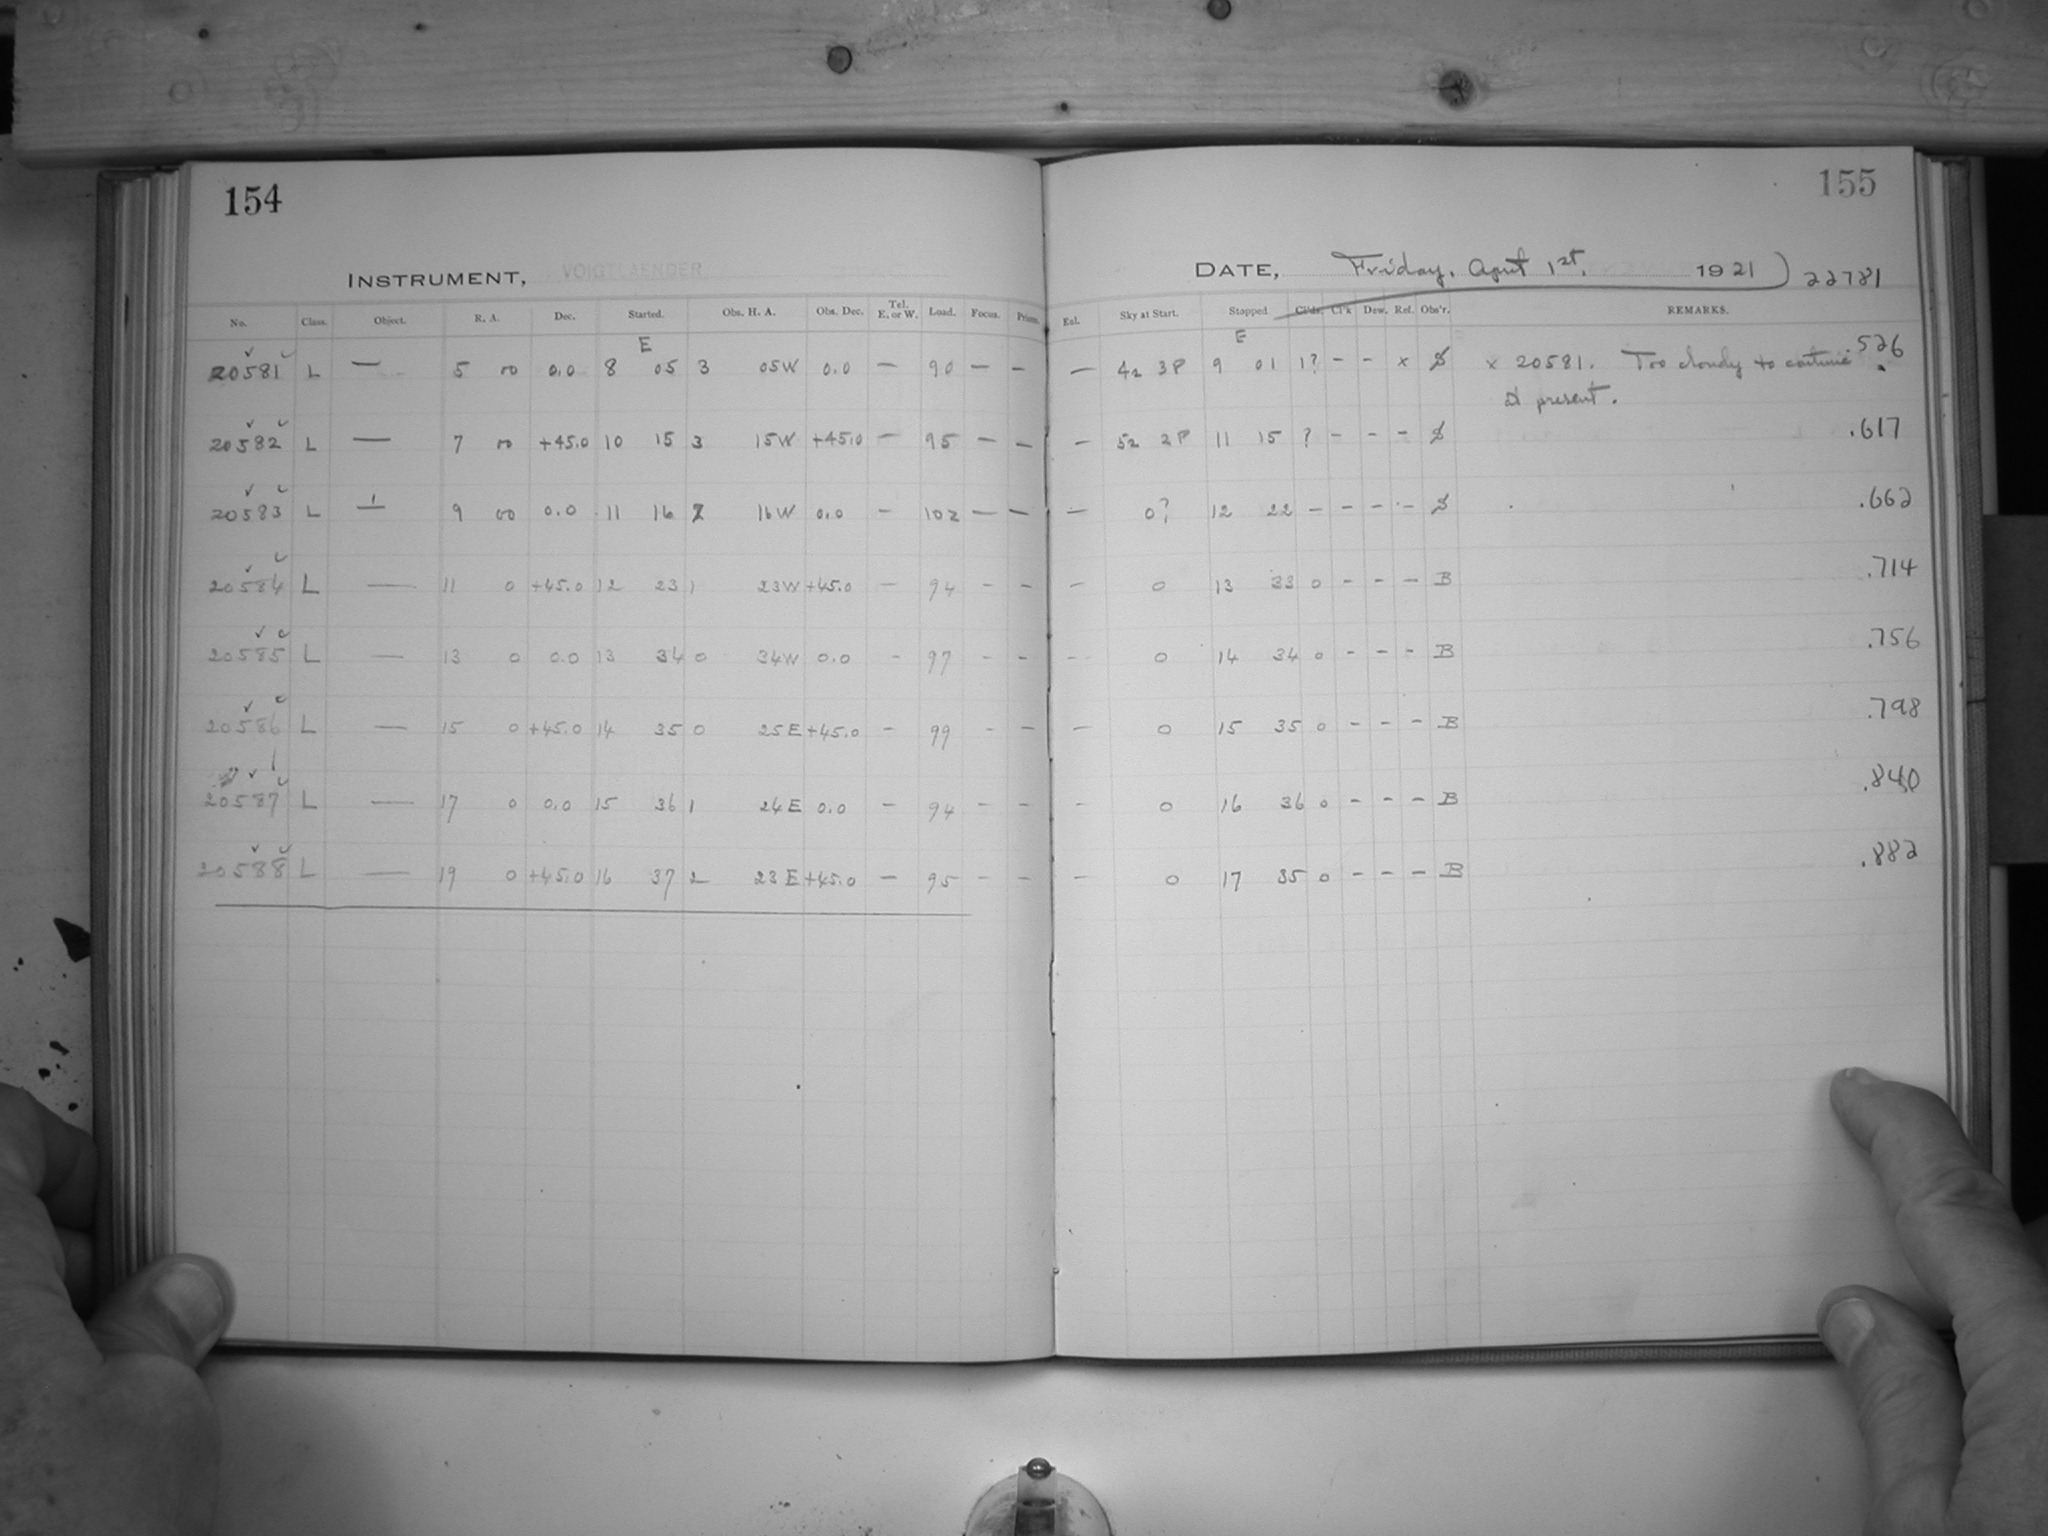 154
155
INSTRUMENT, VOIGTLAENDER
DATE, Friday, April 1st, 1921) 22781
No. Class. Object. R. A. Dec. Started. Obs. H. A. Obs. Dec. Tel. E. or W. Load. Focus. Prism. Exl. Sky at Start. Stopped Cl'ds. Cl'k Dew. Ref. Obs'r. REMARKS.
E E
20581 L — 5 00 0.0 8 05 3 05W 0.0 — 90 — — — 42 3P 9 01 1? - - x S x 20581. Too cloudy to continue .526
at present.
20582 L — 7 00 +45.0 10 15 3 15W +45.0 — 95 — — — 52 2P 11 15 ? - - - S .617
20583 L — 9 00 0.0 11 16 2 16W 0.0 - 102 — — — 0? 12 22 - - - - S .662
20584 L — 11 0 +45.0 12 23 1 23W +45.0 - 94 - - - 0 13 33 0 - - - B .714
20585 L — 13 0 0.0 13 34 0 34W 0.0 - 97 - - - 0 14 34 0 - - - B .756
20586 L — 15 0 +45.0 14 35 0 25E +45.0 - 99 - - - 0 15 35 0 - - - B .798
20587 L — 17 0 0.0 15 36 1 24E 0.0 - 94 - - - 0 16 36 0 - - - B .840
20588 L — 19 0 +45.0 16 37 2 23E +45.0 - 95 - - - 0 17 35 0 - - - B .882